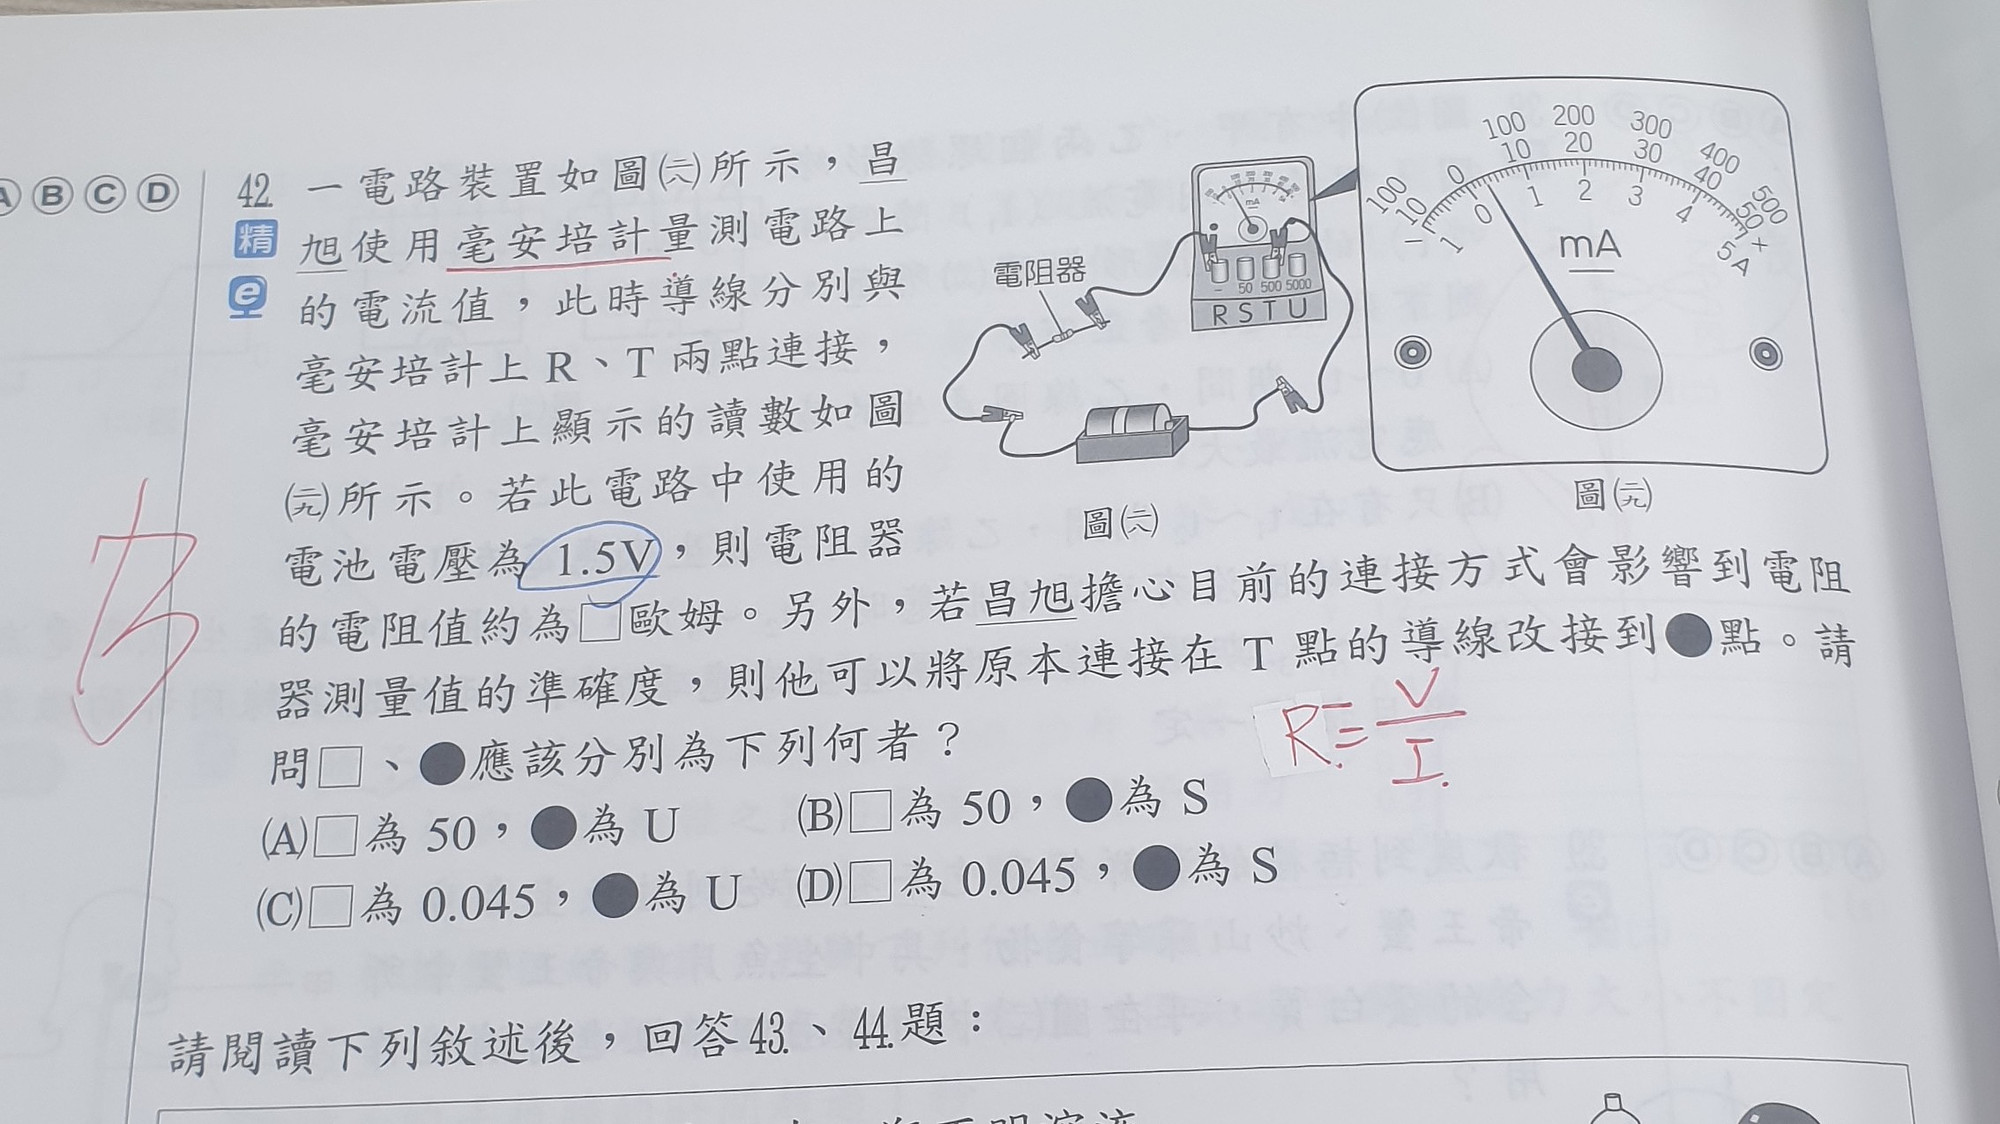 A B C D
42. 一電路裝置如圖(二八)所示，昌
精 旭使用毫安培計量測電路上
e 的電流值，此時導線分別與
毫安培計上 R、T 兩點連接，
毫安培計上顯示的讀數如圖
(二九)所示。若此電路中使用的
電池電壓為 1.5V，則電阻器
的電阻值約為□歐姆。另外，若昌旭擔心目前的連接方式會影響到電阻
器測量值的準確度，則他可以將原本連接在 T 點的導線改接到●點。請
問□、●應該分別為下列何者？
R = V / I
(A)□為 50，●為 U (B)□為 50，●為 S
(C)□為 0.045，●為 U (D)□為 0.045，●為 S
電阻器
mA
- 50 500 5000
R S T U
圖(二八)
100 0 100 200 300 400 500
10 10 20 30 40 50
1 0 1 2 3 4 5
- + A
mA
圖(二九)
請閱讀下列敘述後，回答43.、44.題：